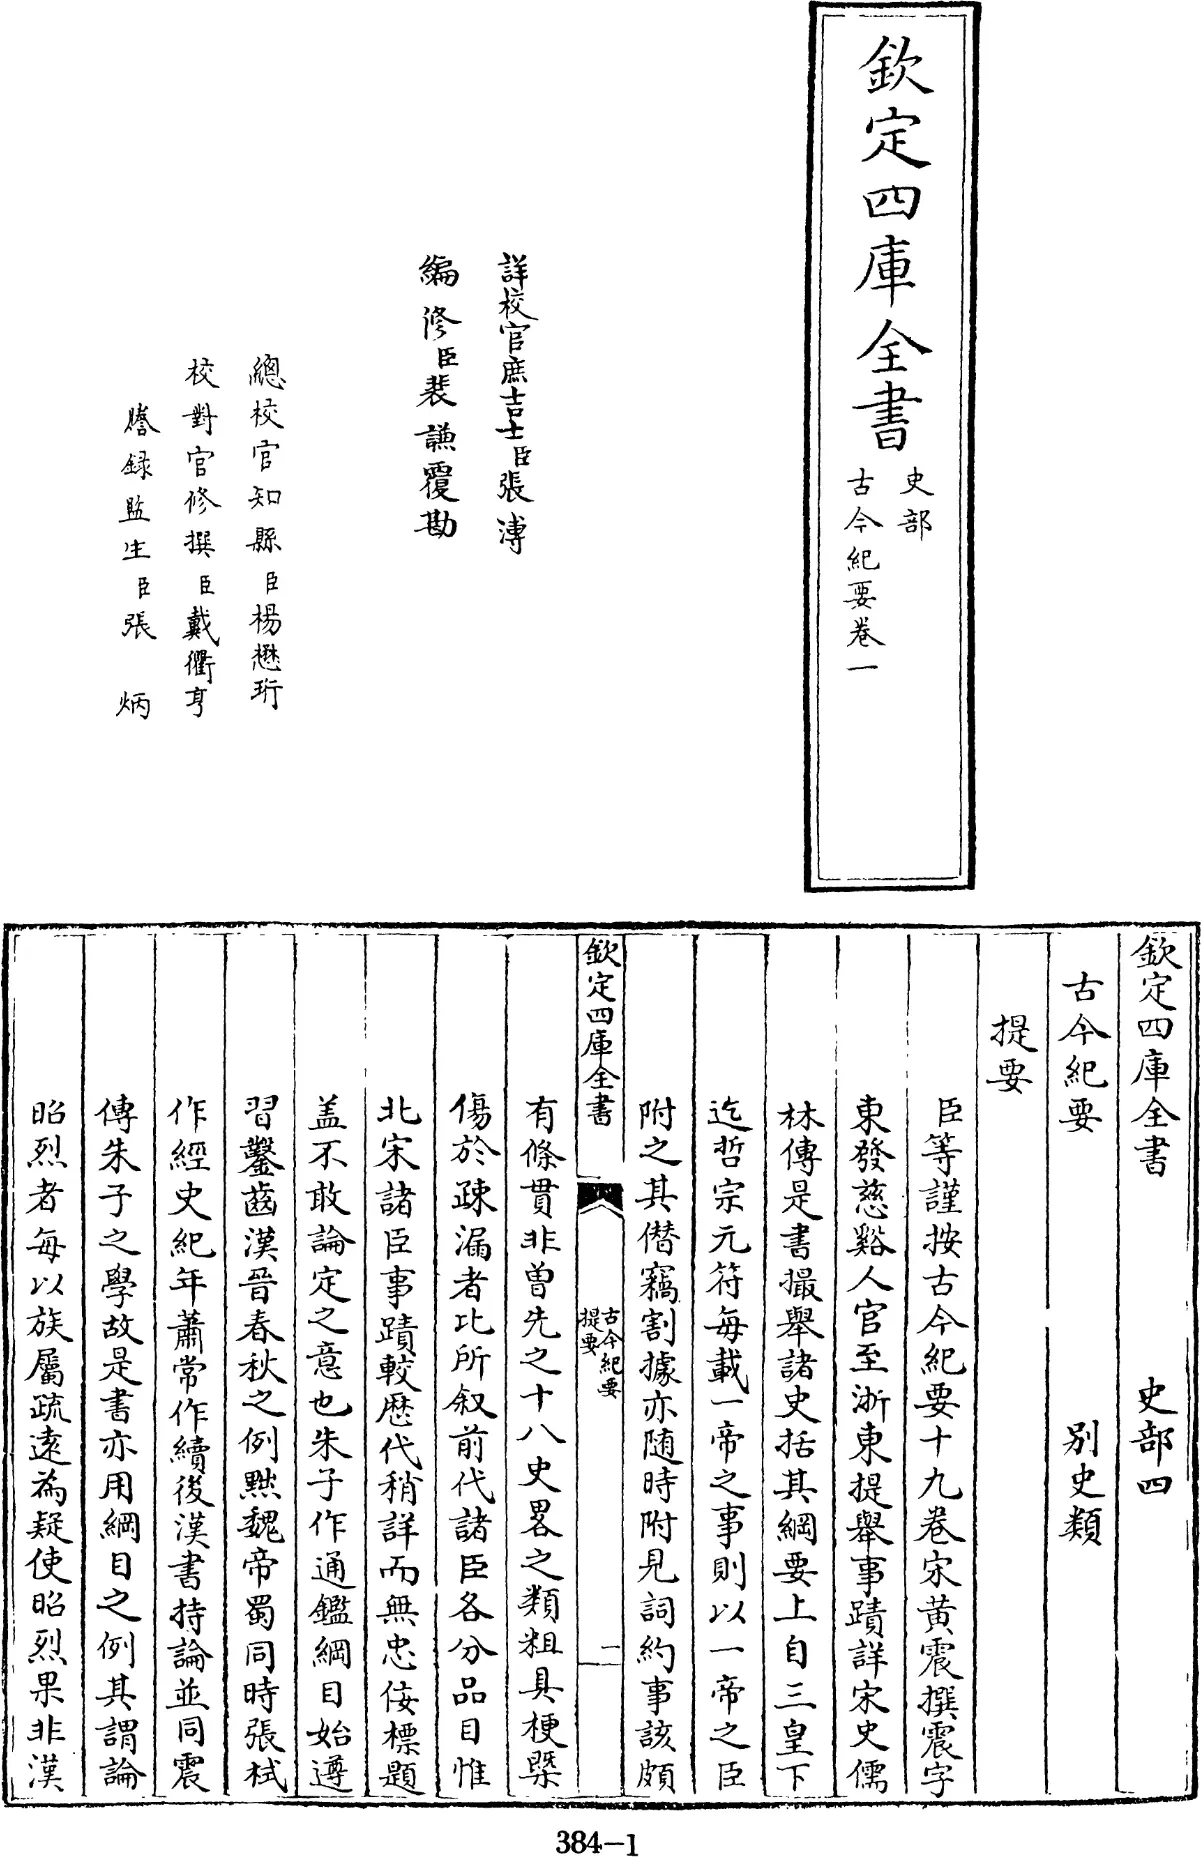 欽定四庫全書
史部
古今紀要卷一
詳校官庶吉士臣張溥
編修臣裴謙覆勘
總校官知縣臣楊懋珩
校對官修撰臣戴衢亨
謄錄監生臣張炳
欽定四庫全書 史部四
古今紀要 別史類
提要
臣等謹按古今紀要十九卷宋黃震撰震字
東發慈谿人官至浙東提舉事蹟詳宋史儒
林傳是書撮舉諸史括其綱要上自三皇下
迄哲宗元符每載一帝之事則以一帝之臣
附之其僭竊割據亦随時附見詞約事該頗
欽定四庫全書
古今紀要
提要
一
有條貫非曾先之十八史畧之類粗具梗槩
傷於疎漏者比所叙前代諸臣各分品目惟
北宋諸臣事蹟較歷代稍詳而無忠佞標題
盖不敢論定之意也朱子作通鑑綱目始遵
習鑿齒漢晉春秋之例黜魏帝蜀同時張栻
作經史紀年蕭常作續後漢書持論並同震
傳朱子之學故是書亦用綱目之例其謂論
昭烈者每以族屬疏遠為疑使昭烈果非漢
384-1